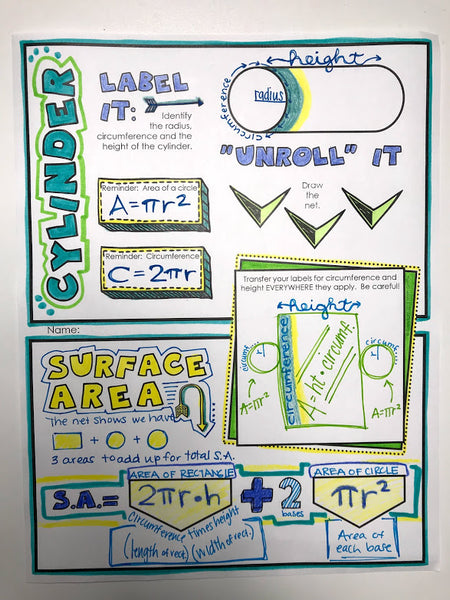 CYLINDER
LABEL
IT:
Identify
the radius,
circumference and the
height of the cylinder.
height
circumference
radius
circumference
"UNROLL" IT
Draw
the
net.
Reminder: Area of a circle
A=πr²
Reminder: Circumference
C=2πr
Transfer your labels for circumference and
height EVERYWHERE they apply. Be careful!
height
circumf.
r
A=πr²
circumference
A=ht•circumf.
circumf.
r
A=πr²
Name:
SURFACE
AREA
The net shows we have
+ +
3 areas to add up for total S.A.
AREA OF RECTANGLE
AREA OF CIRCLE
S.A.= 2πr•h + 2 πr²
bases
Circumference times height
(length of rect) (width of rect.)
Area of
each base